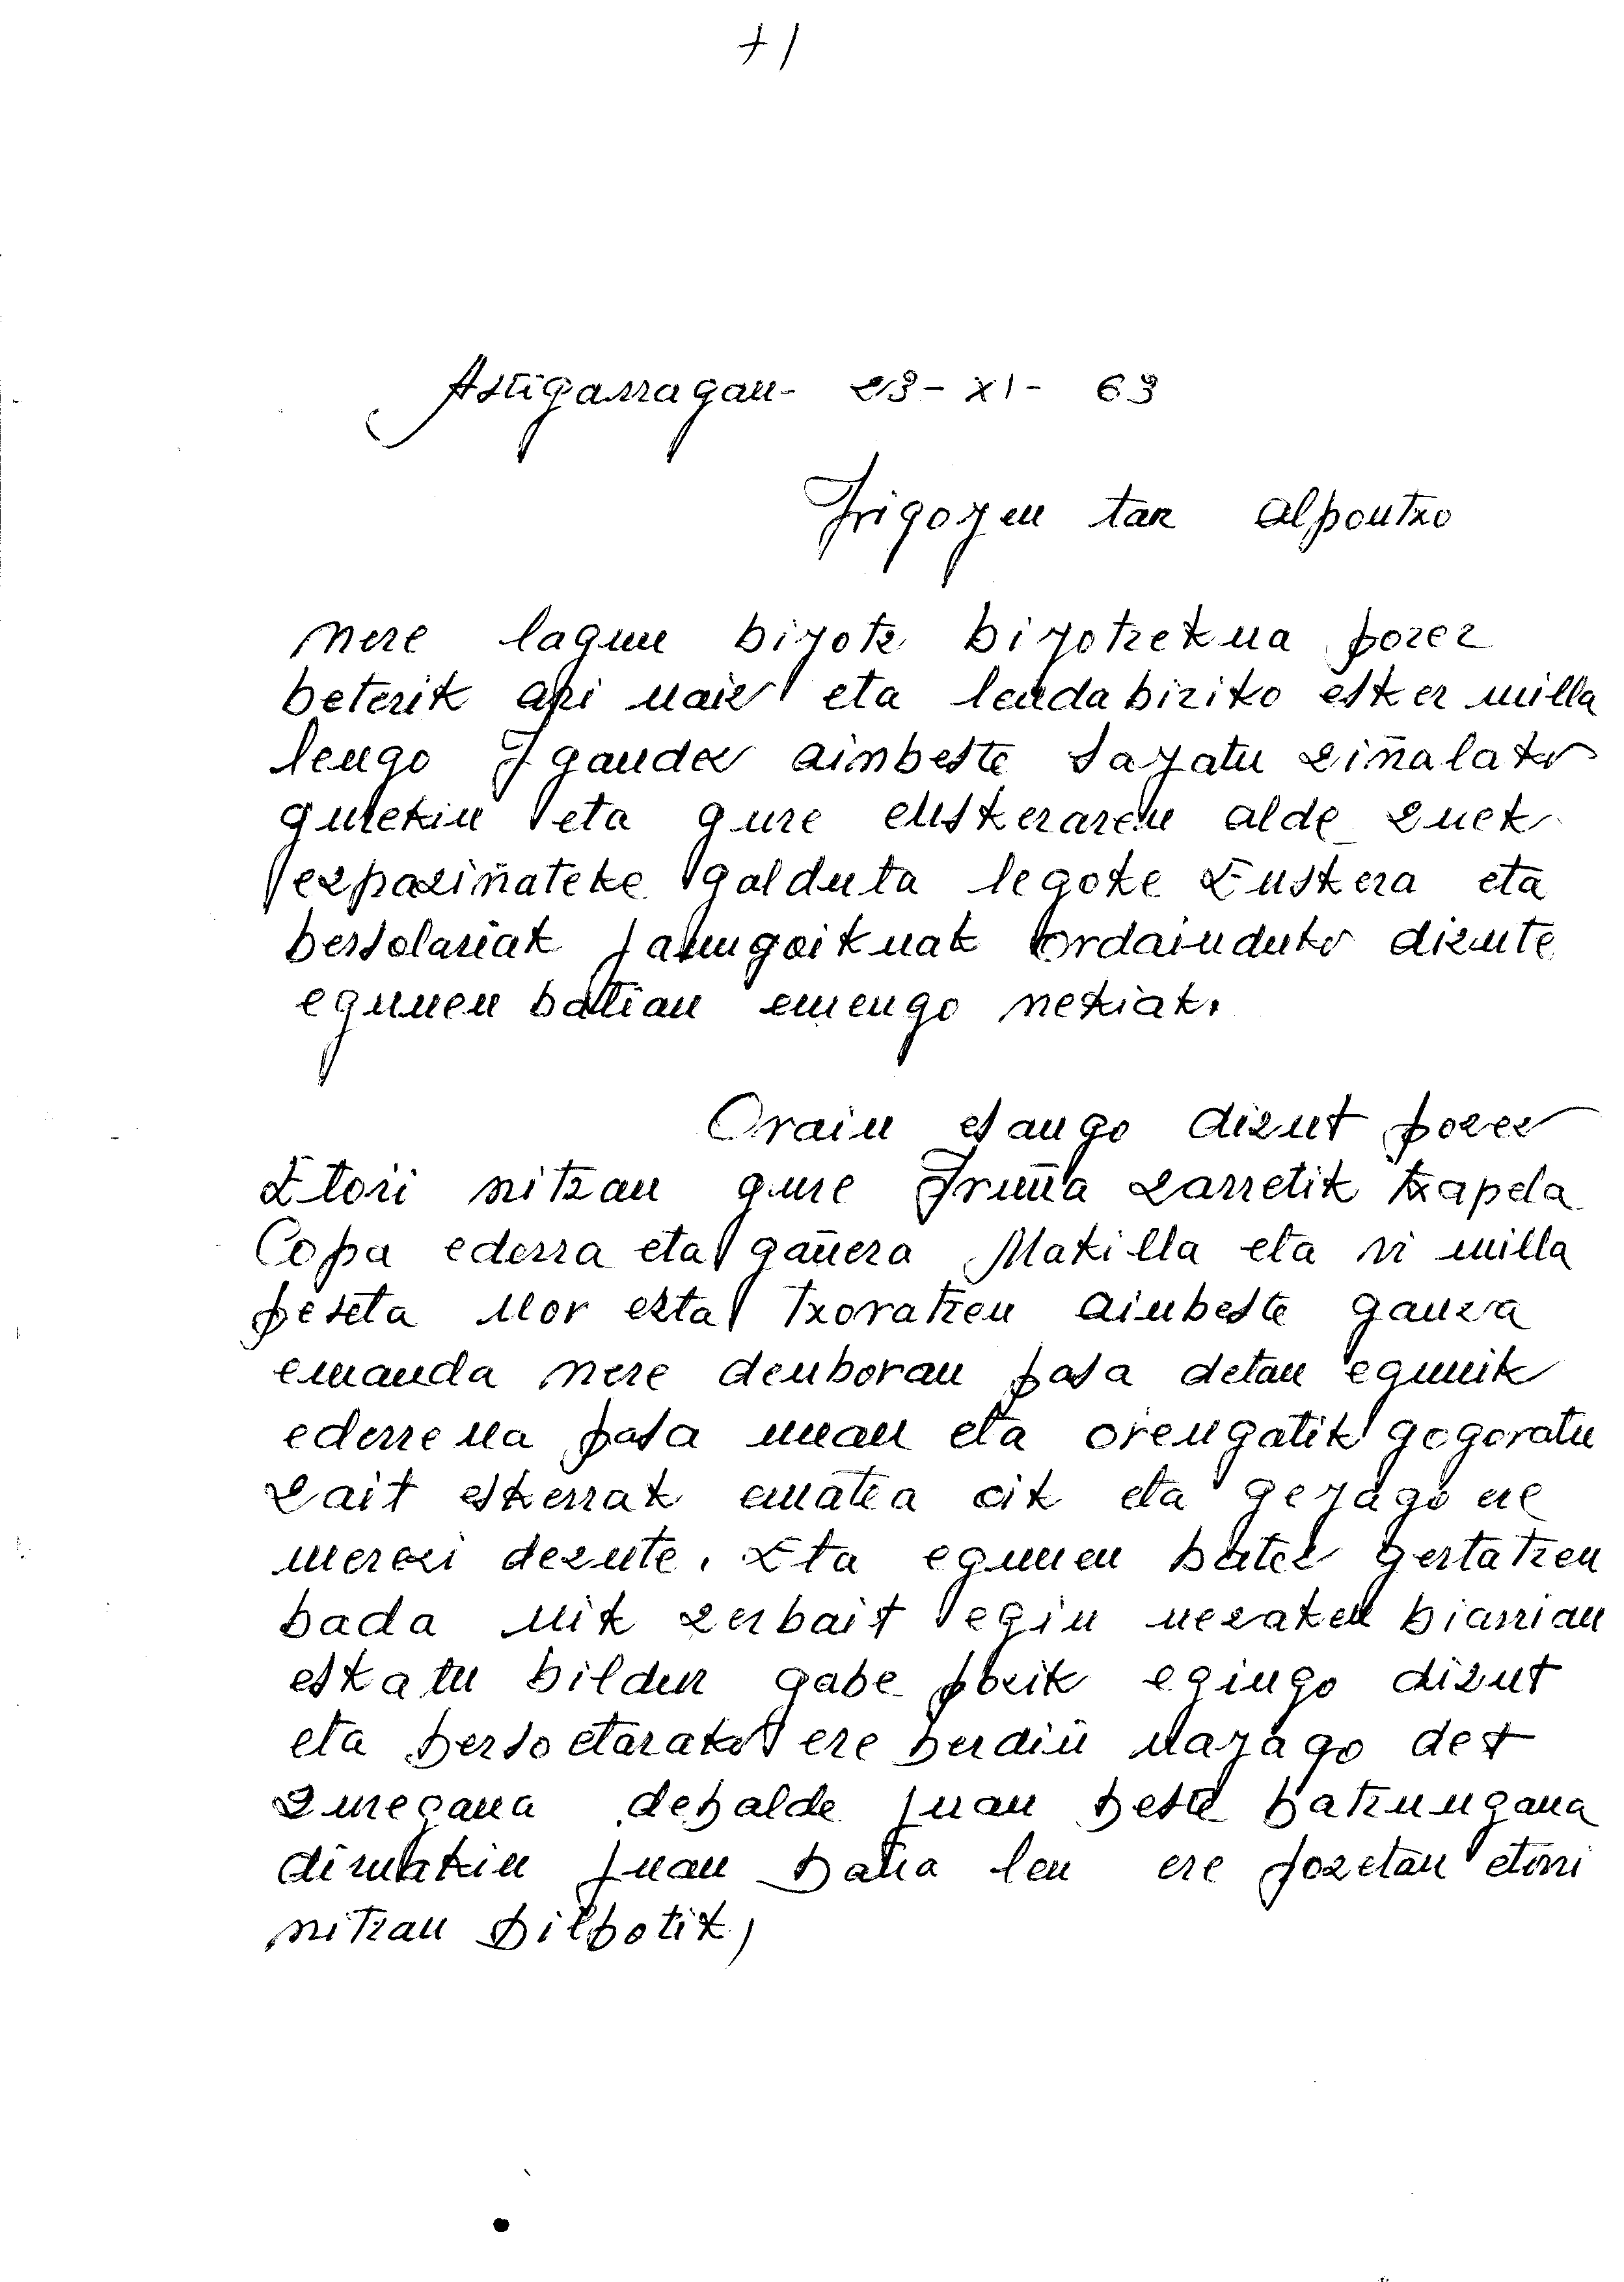 +)
Astigarragan - 23 - XI - 63
Irigoyen tar Alpontxo
Mere lagun biyotz biyotzekua pozez
beterik ari naiz eta lendabiziko esker milla
lengo Igandez ainbeste sayatu ziñalako
gurekin eta gure euskeraren alde zuek
ezpaziñateke galduta legoke Euskera eta
bersolariak jaungoikuak ordainduko dizute
egunen batian emengo nekiak.
Orain esango dizut pozez
Etori nitzan gure Iruña zarretik txapela
Copa ederra eta gañera Makilla eta bi milla
peseta Nor ezta txoratzen ainbeste gauza
emanda nere denboran pasa detan egunik
ederrena pasa nuan eta orengatik gogoratu
zait eskerrak ematia oik eta geyago ere
merezi dezute. Eta egunen batez gertatzen
bada nik zerbait egin nezaken biarrian
eskatu bildur gabe pozik egingo dizut
eta bersoetarako ere berdin nayago det
zuregana debalde juan beste batzungana
dirukin juan baña len ere pozetan etorri
nitzan Bilbotik)